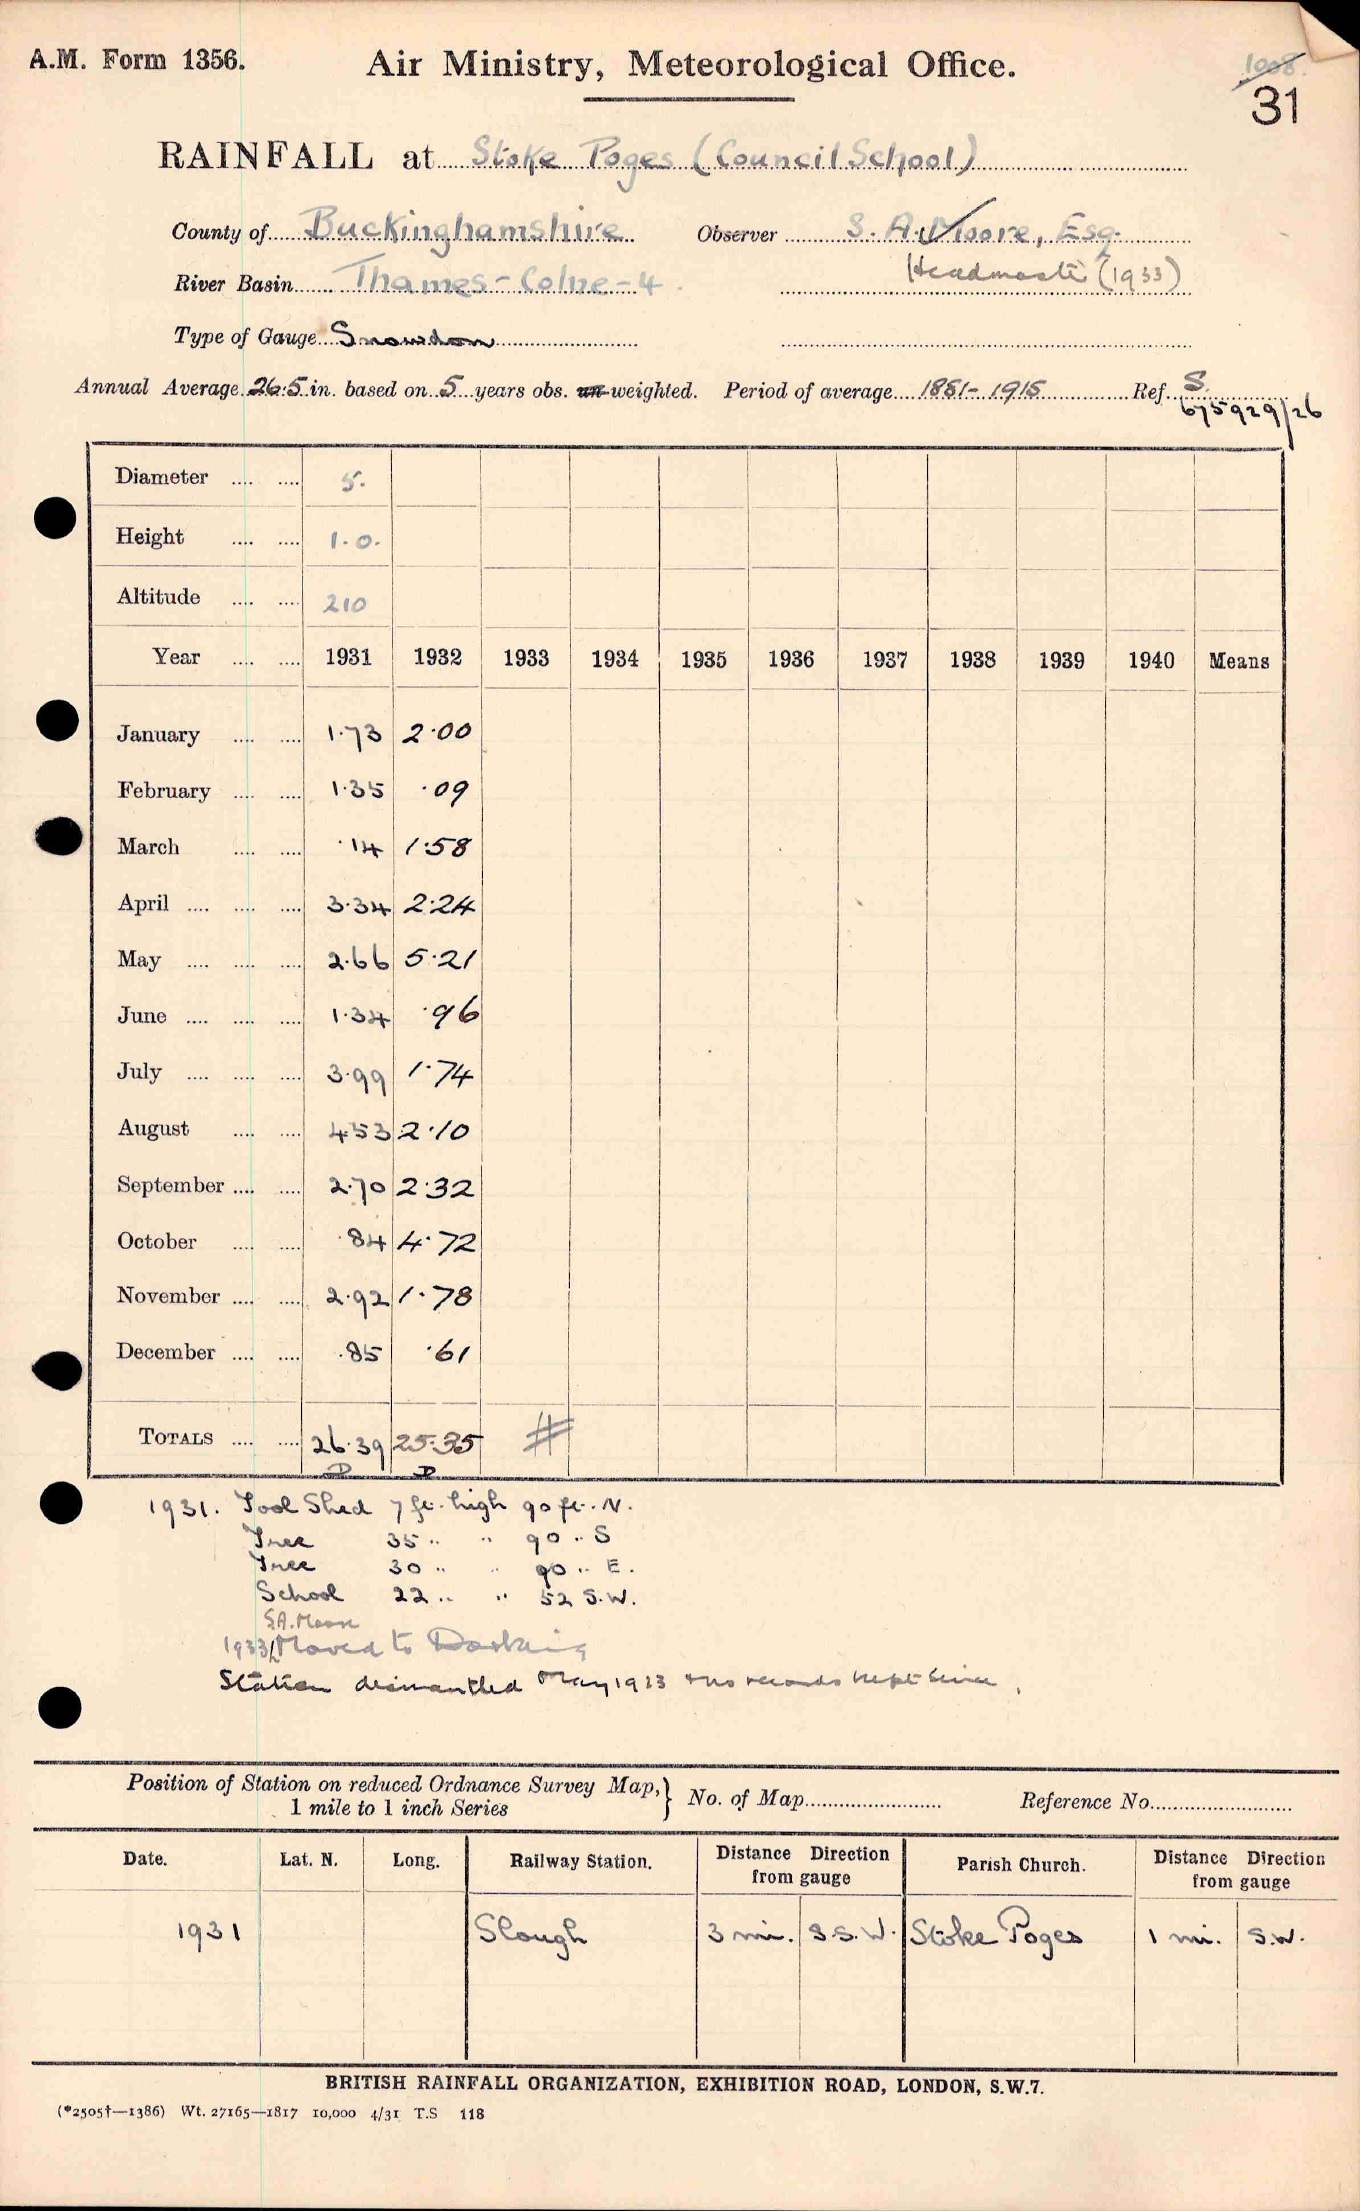 A.M. Form 1356. Air Ministry, Meteorological Office. 1008
31
RAINFALL at Stoke Poges (Council School)
County of Buckinghamshire Observer S. A. Moore, Esq.
River Basin Thames-Colne-4. Headmaster (1933)
Type of Gauge Snowdon
Annual Average 26.5 in. based on 5 years obs. un weighted. Period of average 1881-1915 Ref. S.
675929/26
Diameter .... .... 5.
Height .... .... 1.0.
Altitude .... .... 210
Year .... .... 1931 1932 1933 1934 1935 1936 1937 1938 1939 1940 Means
January .... .... 1.73 2.00
February .... .... 1.35 .09
March .... .... .14 1.58
April .... .... .... 3.34 2.24
May .... .... .... 2.66 5.21
June .... .... .... 1.34 .96
July .... .... .... 3.99 1.74
August .... .... 4.53 2.10
September .... .... 2.70 2.32
October .... .... .84 4.72
November .... .... 2.92 1.78
December .... .... .85 .61
TOTALS .... .... 26.39 25.35 #
D D
1931. Tool Shed 7 ft. high 90 ft. N.
Tree 35 " " 90 " S
Tree 30 " " 90 " E.
School 22 " " 52 S.W.
S.A. Moore
1933 Moved to Dorking
Station dismantled May 1933 & no records kept since.
Position of Station on reduced Ordnance Survey Map,} No. of Map Reference No.
1 mile to 1 inch Series
Date. Lat. N. Long. Railway Station. Distance Direction Parish Church. Distance Direction
from gauge from gauge
1931 Slough 3 mi. S.S.W. Stoke Poges 1 mi. S.W.
BRITISH RAINFALL ORGANIZATION, EXHIBITION ROAD, LONDON, S.W.7.
(*2505†—1386) Wt. 27165—1817 10,000 4/31 T.S 118